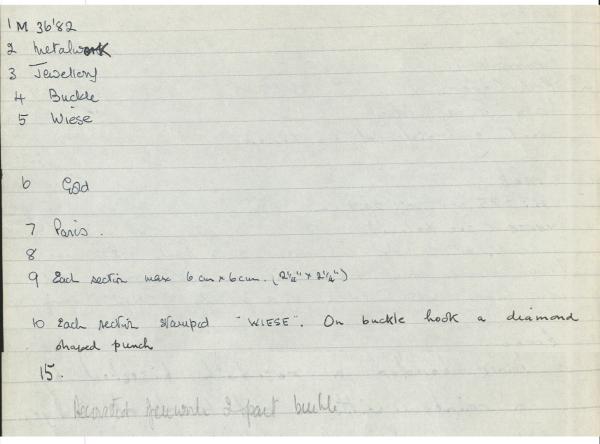 1 M 36'82
2 Metalwork
3 Jewellery
4 Buckle
5 Wiese
6 Gold
7 Paris.
8
9 Each section max 6 cm x 6 cm. (2¼" x 2¼")
10 Each section stamped "WIESE". On buckle hook a diamond
shaped punch
15.
Decorated 2 part buckle